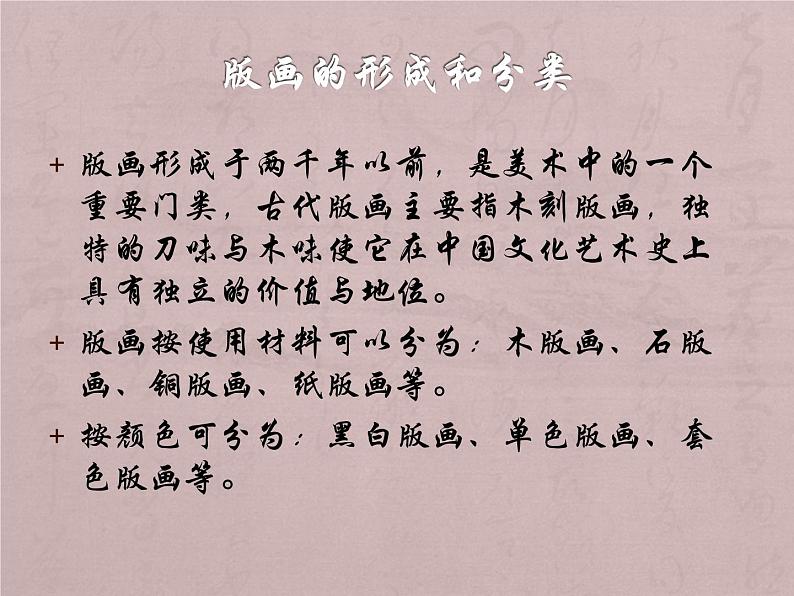 版画的形成和分类
+ 版画形成于两千年以前，是美术中的一个
重要门类，古代版画主要指木刻版画，独
特的刀味与木味使它在中国文化艺术史上
具有独立的价值与地位。
+ 版画按使用材料可以分为：木版画、石版
画、铜版画、纸版画等。
+ 按颜色可分为：黑白版画、单色版画、套
色版画等。